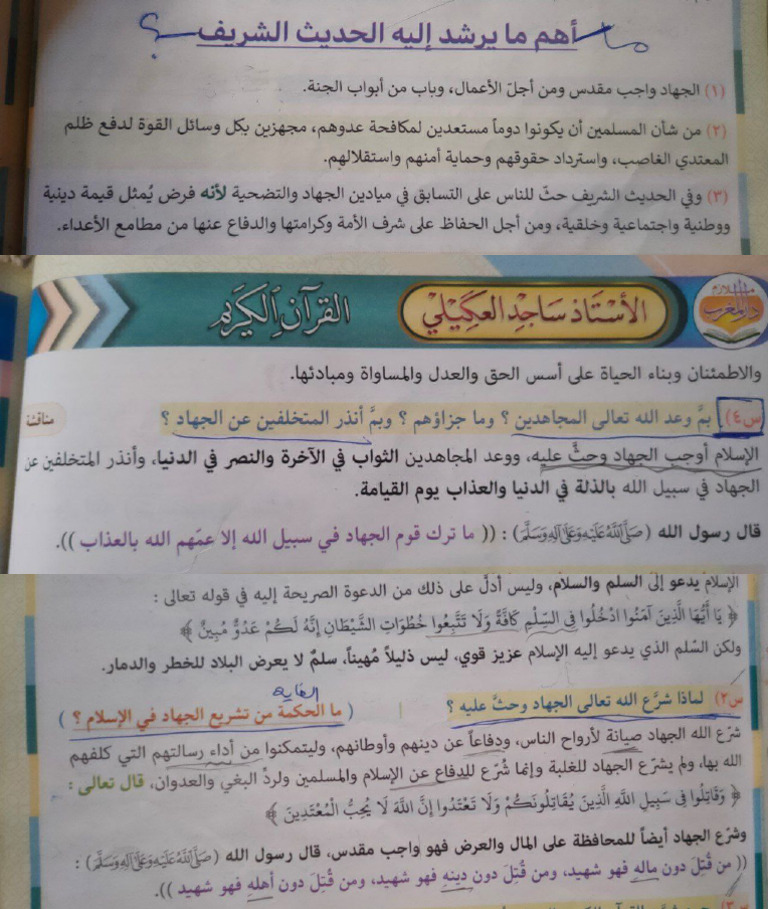 أهم ما يرشد إليه الحديث الشريف
ما ؟
(١) الجهاد واجب مقدس ومن أجلّ الأعمال، وباب من أبواب الجنة.
(٢) من شأن المسلمين أن يكونوا دوماً مستعدين لمكافحة عدوهم، مجهزين بكل وسائل القوة لدفع ظلم
المعتدي الغاصب، واسترداد حقوقهم وحماية أمنهم واستقلالهم.
(٣) وفي الحديث الشريف حثّ للناس على التسابق في ميادين الجهاد والتضحية لأنه فرض يُمثل قيمة دينية
ووطنية واجتماعية وخلقية، ومن أجل الحفاظ على شرف الأمة وكرامتها والدفاع عنها من مطامع الأعداء.
ملازم دار المغرب
الأستاذ ساجد العكيلي
القرآن الكريم
والاطمئنان وبناء الحياة على أسس الحق والعدل والمساواة ومبادئها.
س٤) بمَّ وعد الله تعالى المجاهدين ؟ وما جزاؤهم ؟ وبمَّ أنذر المتخلفين عن الجهاد ؟
مناقشة
الإسلام أوجب الجهاد وحثَّ عليه، ووعد المجاهدين الثواب في الآخرة والنصر في الدنيا، وأنذر المتخلفين عن
الجهاد في سبيل الله بالذلة في الدنيا والعذاب يوم القيامة.
قال رسول الله (صَلَّى اللَّهُ عَلَيْهِ وَعَلَى آلِهِ وَسَلَّمَ) : (( ما ترك قوم الجهاد في سبيل الله إلا عمّهم الله بالعذاب )).
الإسلام يدعو إلى السلم والسلام، وليس أدلَّ على ذلك من الدعوة الصريحة إليه في قوله تعالى :
﴿ يَا أَيُّهَا الَّذِينَ آمَنُوا ادْخُلُوا فِي السِّلْمِ كَافَّةً وَلَا تَتَّبِعُوا خُطُوَاتِ الشَّيْطَانِ إِنَّهُ لَكُمْ عَدُوٌّ مُبِينٌ ﴾
ولكن السّلم الذي يدعو إليه الإسلام عزيز قوي، ليس ذليلاً مُهيناً، سلمٌ لا يعرض البلاد للخطر والدمار.
الغاية
س٢) لماذا شرَّع الله تعالى الجهاد وحثَّ عليه ؟ ( ما الحكمة من تشريع الجهاد في الإسلام ؟ )
شرّع الله الجهاد صيانة لأرواح الناس، ودفاعاً عن دينهم وأوطانهم، وليتمكنوا من أداء رسالتهم التي كلفهم
الله بها، ولم يشرّع الجهاد للغلبة وإنما شُرّع للدفاع عن الإسلام والمسلمين ولردِّ البغي والعدوان، قال تعالى :
﴿ وَقَاتِلُوا فِي سَبِيلِ اللَّهِ الَّذِينَ يُقَاتِلُونَكُمْ وَلَا تَعْتَدُوا إِنَّ اللَّهَ لَا يُحِبُّ الْمُعْتَدِينَ ﴾
وشرّع الجهاد أيضاً للمحافظة على المال والعرض فهو واجب مقدس، قال رسول الله (صَلَّى اللَّهُ عَلَيْهِ وَعَلَى آلِهِ وَسَلَّمَ) :
(( من قُتِلَ دون ماله فهو شهيد، ومن قُتِلَ دون دينه فهو شهيد، ومن قُتِلَ دون أهله فهو شهيد )).
س٣)